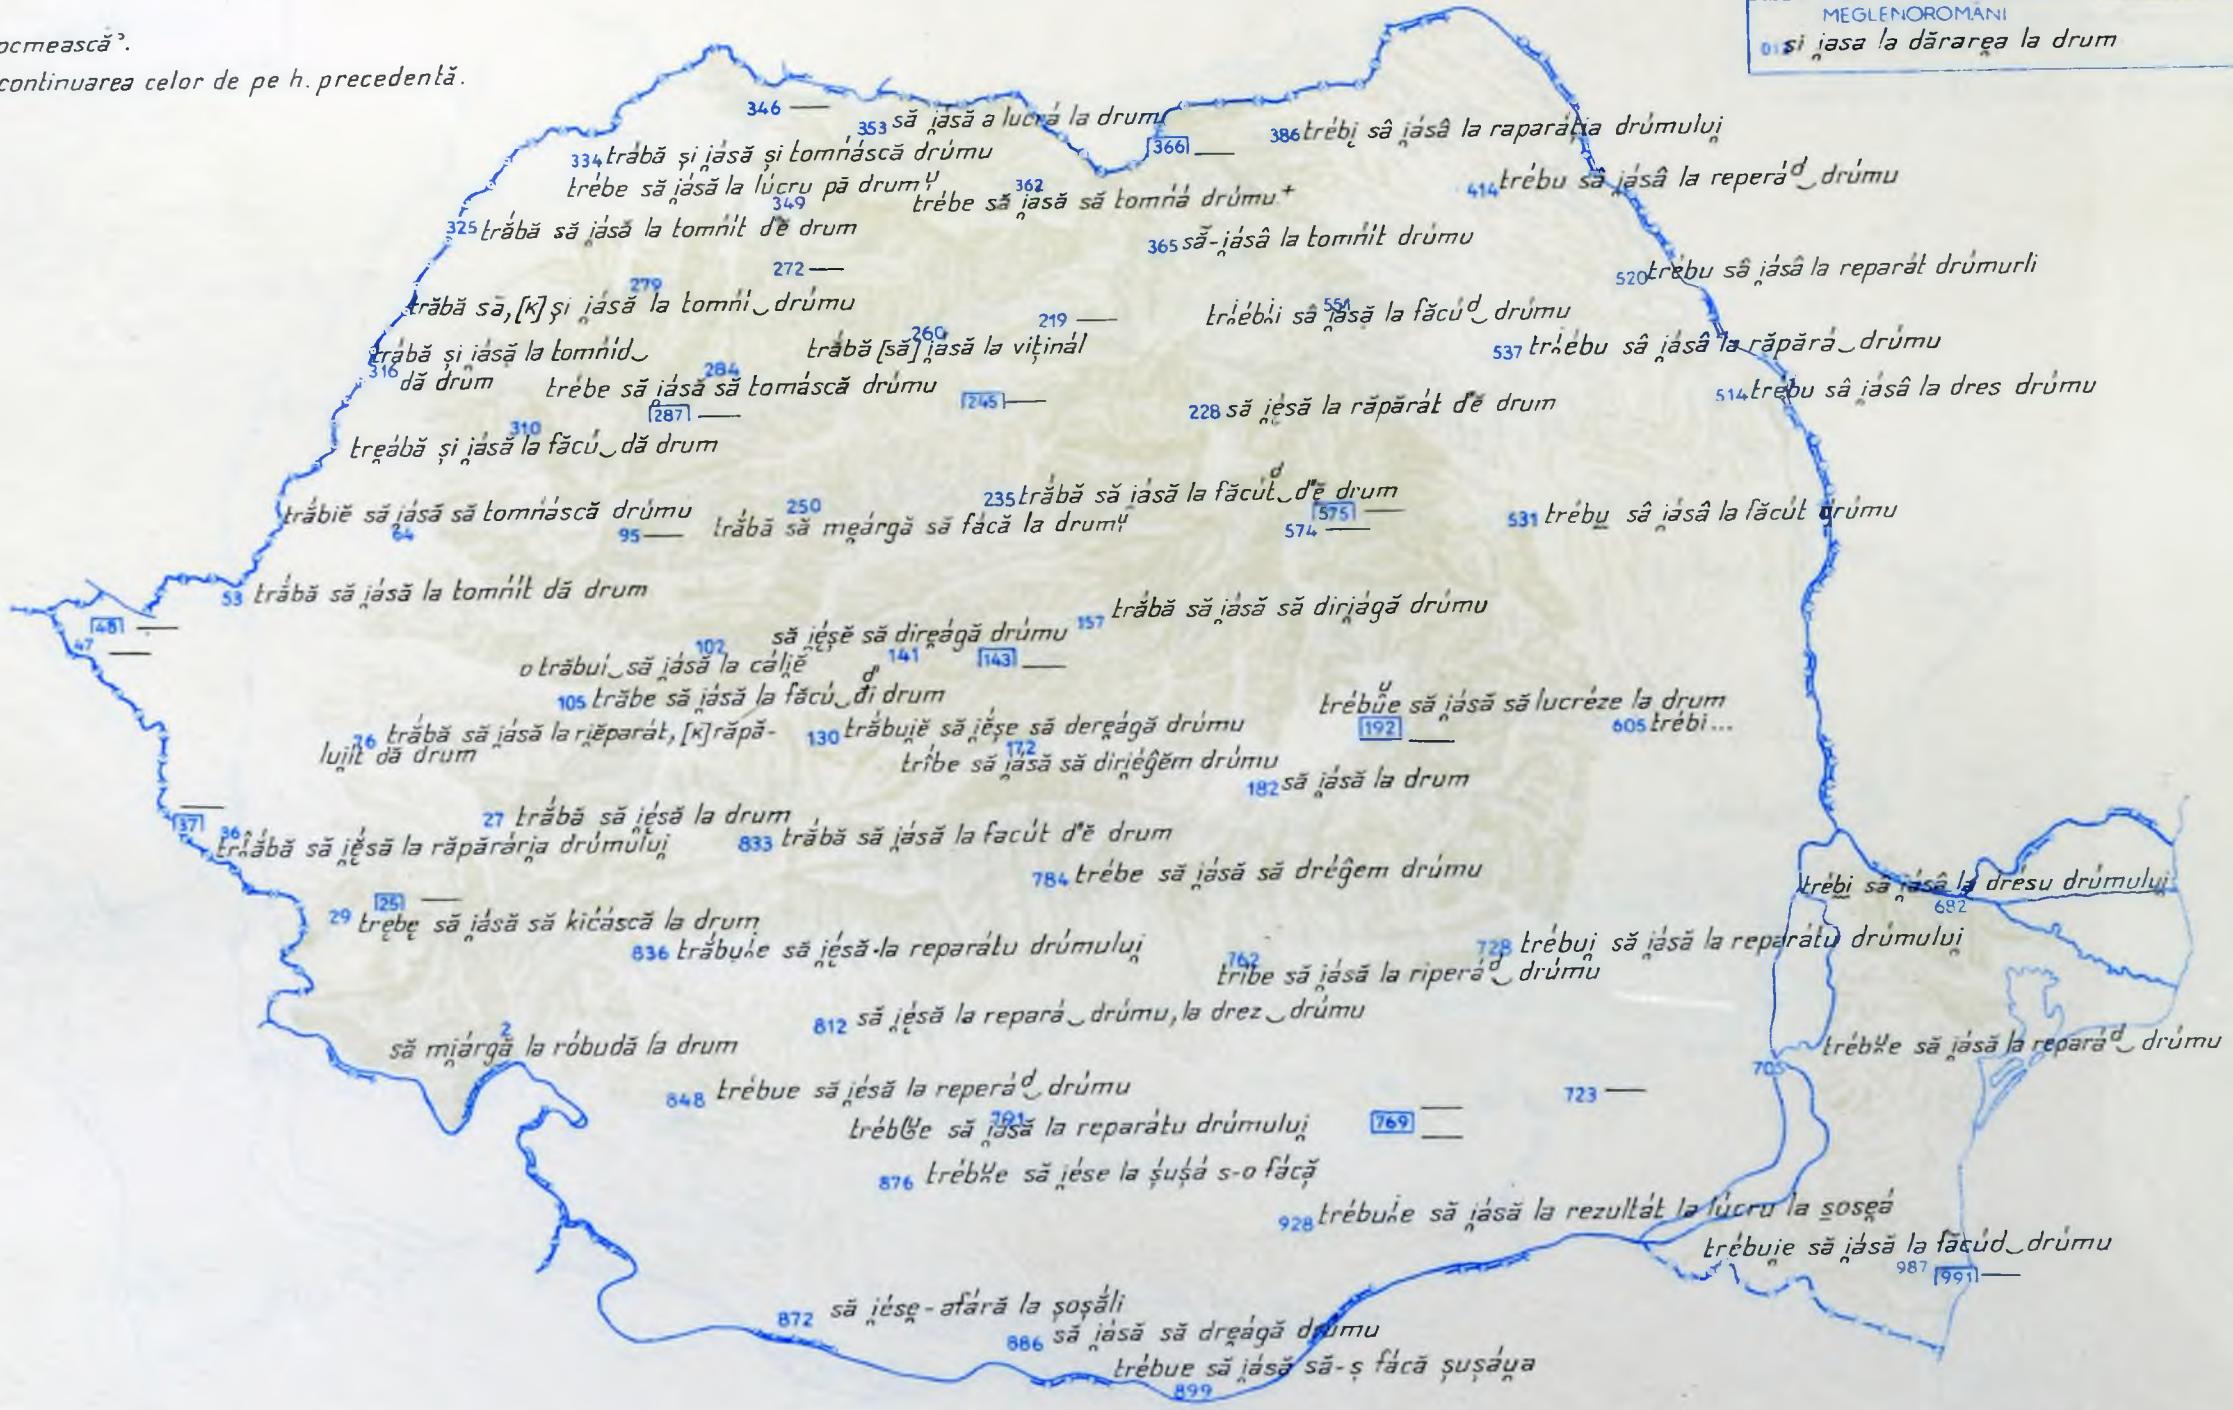 ocmească’.
continuarea celor de pe h. precedentă.
MEGLENOROMÂNI
si i̯asa la dărarea̯ la drum
346 —
353 să i̯ásă a lucrá la drum
366 —
386 trébi̯ sâ i̯ásâ la raparáți̯a drúmului̯
334 trắbă și i̯ásă și tomńáscă drúmu
trébe să i̯ásă la lúcru pă drumᶙ
349
362
trébe să i̯asă să tomńá drúmu⁺
414 trébu sâ i̯ásâ la reperáᵈ‿drúmu
325 trắbă să i̯ásă la tomńít d'ĕ drum
365 să-i̯ásâ la tomńít drúmu
272 —
520 trébu sâ i̯ásâ la reparát drúmurli
279
trăbă să, [к] și i̯ásă la tomńí‿drúmu
551
sâ i̯ásă la făcúᵈ‿drúmu
219 —
260
trắbă [să] i̯ásă la viținál
trắbă și i̯ásă la tomńíd‿
316 dă drum
537 sâ i̯ásâ la răpărá‿drúmu
284
trébe să i̯ásă să tomáscă drúmu
287 —
245 —
514 trébu sâ i̯ásâ la dres drúmu
228 să i̯ésă la răpărát d'ĕ drum
310
tre̯ábă și i̯ásă la făcú‿dă drum
235 trắbă să i̯ásă la făcút‿d'ĕ drum
575 —
574 —
trắbiĕ să i̯ásă să tomńáscă drúmu
64
95 —
250
trắbă să me̯árgă să fácă la drumᶙ
531 trébu sâ i̯ásâ la făcút drúmu
53 trắbă să i̯ásă la tomńít dă drum
48 —
47 —
157 trắbă să i̯ásă să diri̯ágă drúmu
să i̯éșĕ să dire̯ágă drúmu
141
143 —
102
o trăbui‿să i̯ásă la cálḭĕ
105 trăbe să i̯ásă la făcú‿đi drum
să i̯ásă să lucréze la drum
192 —
605 trébi...
76 trắbă să i̯ásă la ri̯ĕparát, [к] răpă-
lui̯ít dă drum
130 trắbui̯ĕ să i̯éșe să dere̯ágă drúmu
172
tríbe să i̯ásă să diri̯éĝĕm drúmu
182 să i̯ásă la drum
37 —
27 trắbă să i̯ésă la drum
36
să i̯ésă la răpărári̯a drúmului̯
833 trắbă să i̯ásă la facút d'ĕ drum
784 trébe să i̯ásă să dréĝem drúmu
trébi sâ i̯ásâ la drésu drúmului̯
682
25 —
29 trebe să i̯ásă să kićáscă la drum
836 să i̯ésă-la reparátu drúmului̯
728 trébui̯ să i̯ásă la reparátu drúmului̯
762
tribe să i̯ásă la riperáᵈ‿drúmu
812 să i̯ésă la repará‿drúmu, la drez‿drúmu
2
să mi̯árgă la róbudă la drum
să i̯ásă la reparáᵈ‿drúmu
705
848 trébue să i̯ésă la reperáᵈ‿drúmu
723 —
791
să i̯ásă la reparátu drúmului̯
769 —
—
876 să i̯ése la șușá s-o fácă
928 să i̯ásă la rezultát la lúcru la sose̯á
trébui̯e să i̯ásă la făcúd‿drúmu
987
991 —
872 să i̯ése-afáră la șoșắli
886 să i̯ásă să dre̯ágă drúmu
trébue să i̯ásă să-ș fácă șușáu̯a
899